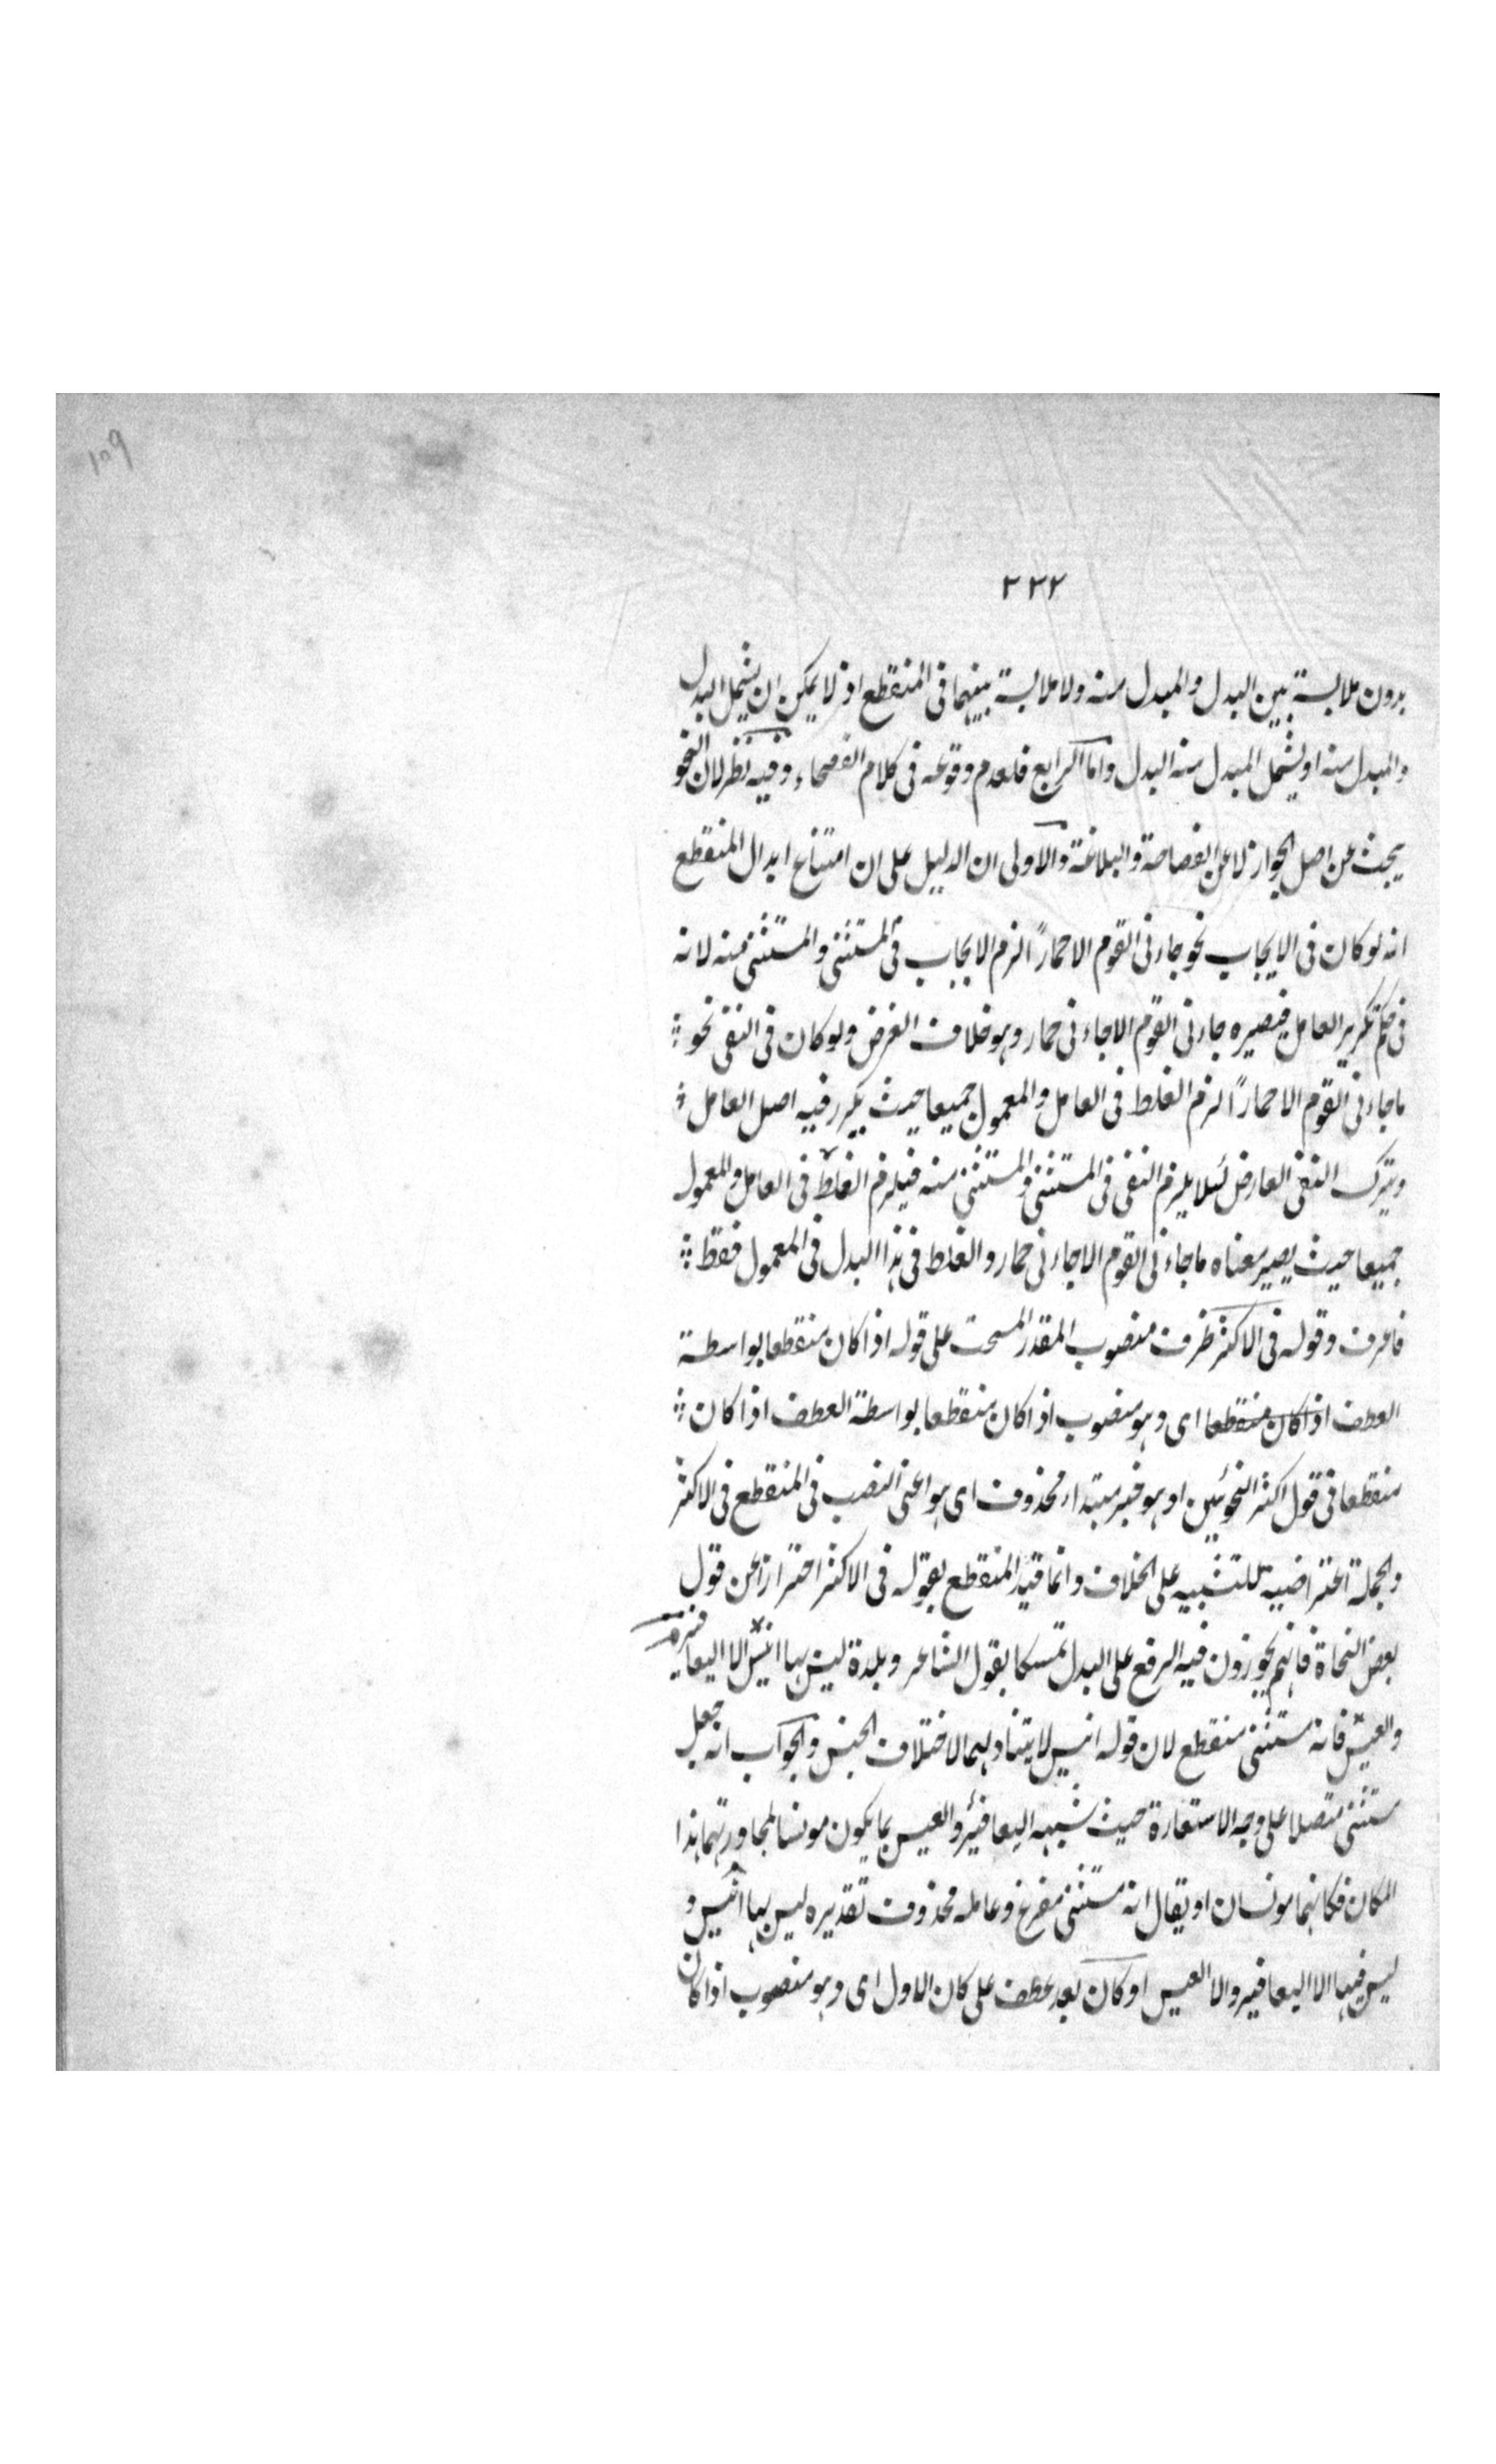 ١٥٩
٣٣٢
بدون ملابسة بين البدل والمبدل منه ولا ملابسة بينهما فى المنقطع اذ لا يمكن ان يشمل البدل
والمبدل منه او يشمل المبدل منه البدل واما الرابع فلعدم وقوعه فى كلام الفصحاء وفيه نظر لان النحو
يبحث عن اصل الجواز لا عن الفصاحة والبلاغة والاولى ان الدليل على ان امتناع ابدال المنقطع
انه لو كان فى الايجاب نحو جاءنى القوم الا حمارًا لزم الايجاب فى المستثنى والمستثنى منه لانه
فى حكم تكرير العامل فيصيره جاءنى القوم الا جاءنى حمار وهو خلاف الغرض ولو كان فى النفى نحو
ماجاءنى القوم الا حمارًا لزم الغلط فى العامل والمعمول جميعا حيث يكرر فيه اصل العامل
ويترك النفى العارض لئلا يلزم النفى فى المستثنى والمستثنى منه فيلزم الغلط فى العامل والمعمول
جميعا حيث يصير معناه ماجاءنى القوم الا جاءنى حمار والغلط فى هذا البدل فى المعمول فقط
فاعرف وقوله فى الاكثر ظرف منصوب المقدر على قوله اذا كان منقطعا بواسطة
العطف اذا كان منقطعا اى وهو منصوب اذا كان منقطعا بواسطة العطف اذا كان
منقطعا فى قول اكثر النحويين او هو خبر مبتداء محذوف اى هو اعنى النصب فى المنقطع فى الاكثر
والجملة اعتراضية للتنبيه على الخلاف وانما قيد المنقطع بقوله فى الاكثر احترازا عن قول
بعض النحاة فانهم يجوزون فيه الرفع على البدل تمسكا بقول الشاعر وبلدة ليس بها انيس الا اليعافير
والعيس فانه مستثنى منقطع لان قوله انيس لا يتناولهما لاختلاف الجنس والجواب انه جعل
مستثنى متصلا على وجه الاستعارة حيث شبه اليعافير والعيس بما يكون مونسا لمجاورتهما هذا
المكان فكانهما مونسان او يقال انه مستثنى مفرغ وعامله محذوف تقديره ليس بها انيس و
ليس فيها الا اليعافير والا العيس او كان بعد عطف على كان الاول اى وهو منصوب اذا كان